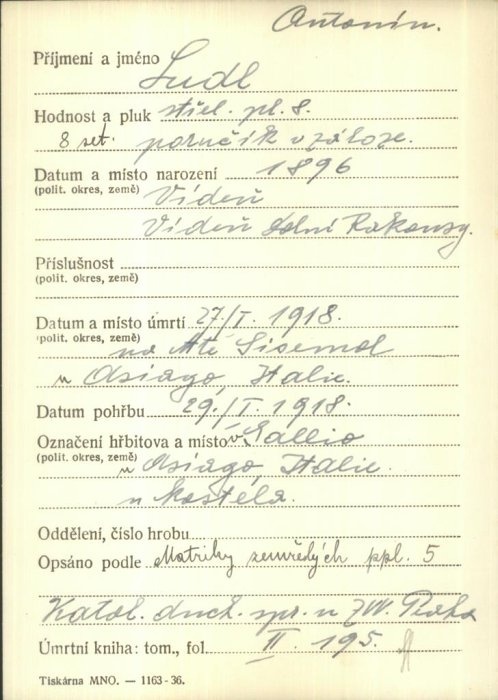 Antonín.
Příjmení a jméno Ludl
Hodnost a pluk střel. pl. 8.
8 set. poručík v záloze.
Datum a místo narození 1896
(polit. okres, země) Vídeň
Vídeň Dolní Rakousy.
Příslušnost
(polit. okres, země)
Datum a místo úmrtí 27./I. 1918.
(polit. okres, země) na Mte Sisemol
u Asiago, Italie.
Datum pohřbu 29./I. 1918.
Označení hřbitova a místo v Gallio
(polit. okres, země) u Asiago, Italie.
u kostela.
Oddělení, číslo hrobu
Opsáno podle Matriky zemřelých ppl. 5
Katol. duch. spr. u ZVV. Praha
Úmrtní kniha: tom., fol. II. 195.
Tiskárna MNO. — 1163-36.